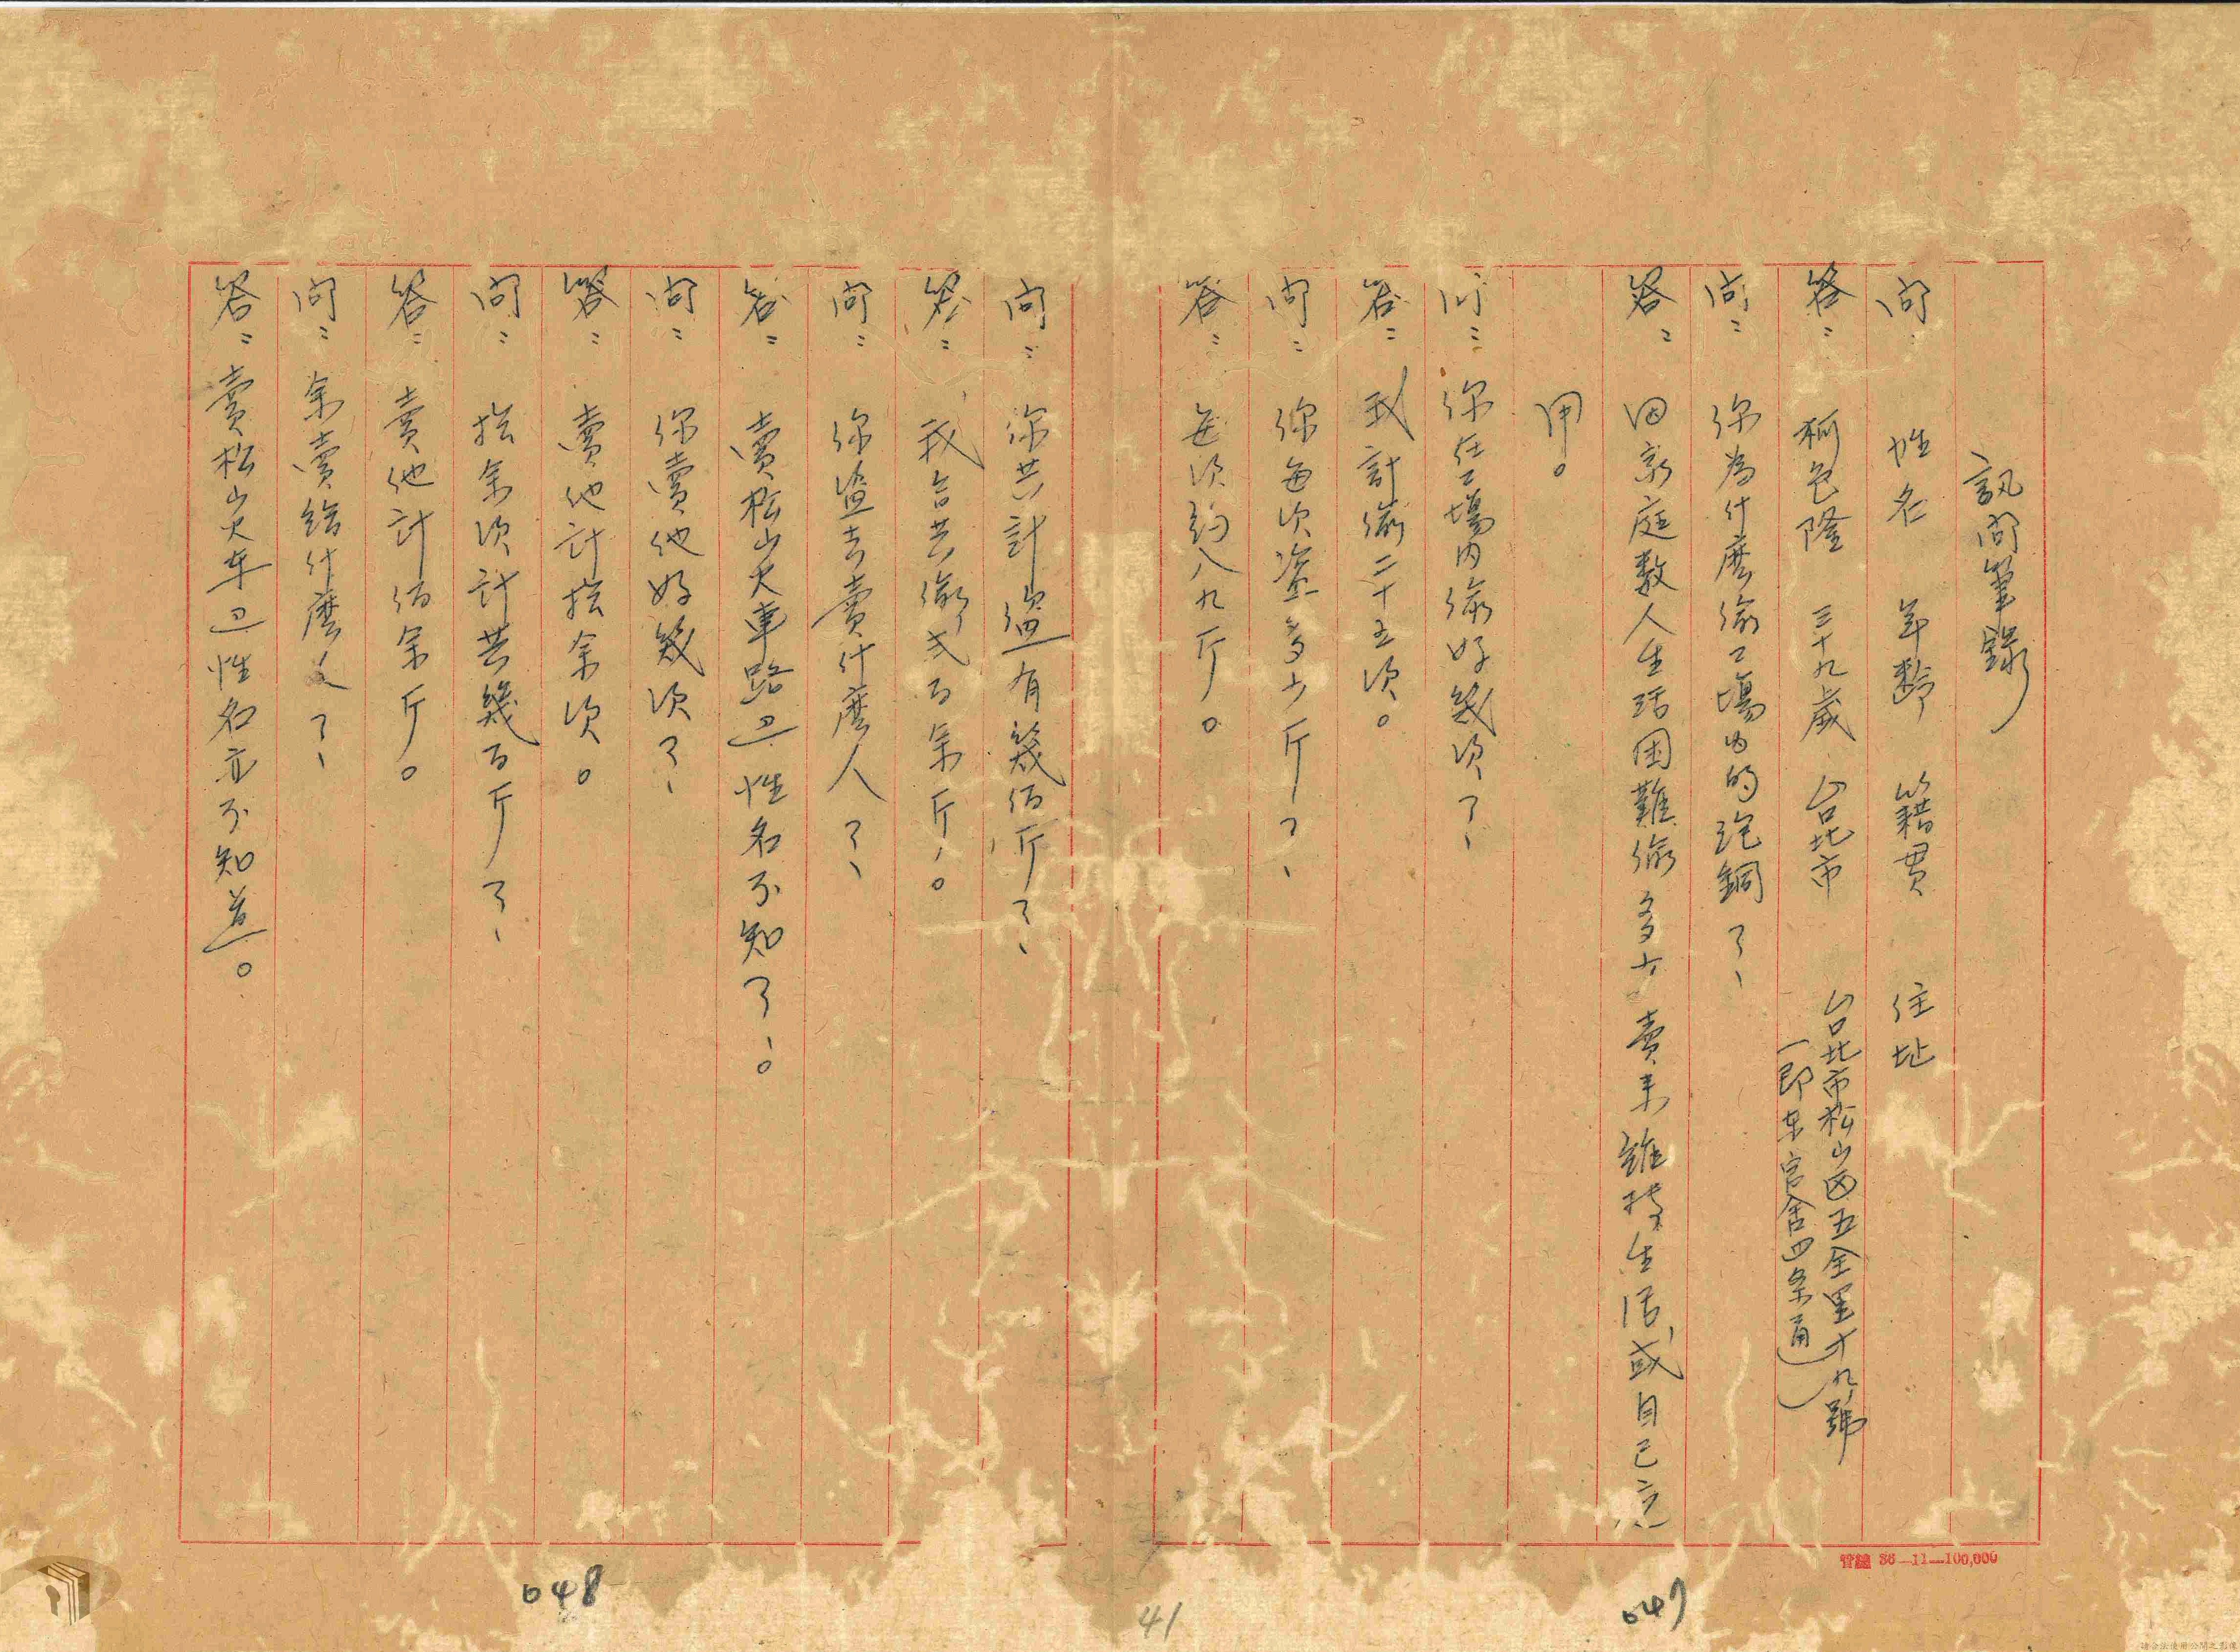 訊問筆錄
問： 姓名 年齡 籍貫 住址
答： 色隆 三十九歲 台北市 台北市松山區五全里十九號
(即東官舍四条通)
問： 你為什麼偷工場內的銅了、
答： 因家庭数人生活困難偷多少賣来維持生活或自己
用。
問： 你在工場内偷好幾次了、
答： 我計偷二十五次。
問： 你每次盜多少斤了、
答： 每次約八九斤。
問： 你共計盜有幾佰斤了、
答： 我合共偷弍百余斤。
問： 你盜去賣什麼人了、
答： 賣松山火車路辺性名不知了、。
問： 你賣他好幾次了、
答： 賣他計拾余次。
問： 拾余次計共幾百斤了、
答： 賣他計佰余斤。
問： 余賣給什麼人了、
答： 賣松山火车辺性名亦不知道。
管總 36—11—100,000
047
41
048